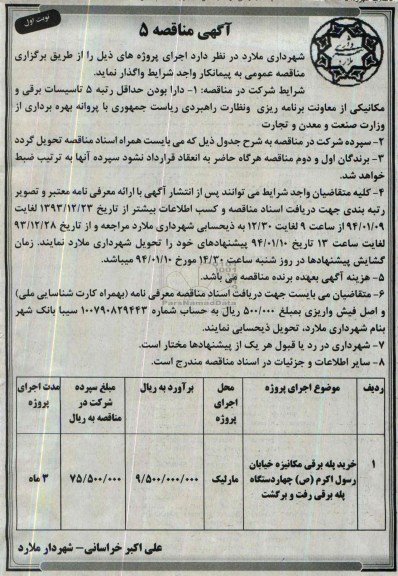 نوبت اول
آگهی مناقصه ۵
شهرداری ملارد
شهرداری ملارد در نظر دارد اجرای پروژه های ذیل را از طریق برگزاری
مناقصه عمومی به پیمانکار واجد شرایط واگذار نماید.
شرایط شرکت در مناقصه: ۱- دارا بودن حداقل رتبه ۵ تاسیسات برقی و
مکانیکی از معاونت برنامه ریزی ونظارت راهبردی ریاست جمهوری با پروانه بهره برداری از
وزارت صنعت و معدن و تجارت
۲-سپرده شرکت در مناقصه به شرح جدول ذیل که می بایست همراه اسناد مناقصه تحویل گردد
۳- برندگان اول و دوم مناقصه هرگاه حاضر به انعقاد قرارداد نشود سپرده آنها به ترتیب ضبط
خواهد شد.
۴- کلیه متقاضیان واجد شرایط می توانند پس از انتشار آگهی با ارائه معرفی نامه معتبر و تصویر
رتبه بندی جهت دریافت اسناد مناقصه و کسب اطلاعات بیشتر از تاریخ ۱۳۹۳/۱۲/۲۳ لغایت
۹۴/۰۱/۰۹ از ساعت ۹ لغایت ۱۲/۳۰ به ذیحسابی شهرداری ملارد مراجعه و از تاریخ ۹۳/۱۲/۲۸
لغایت ساعت ۱۳ تاریخ ۹۴/۰۱/۱۰ پیشنهادهای خود را تحویل شهرداری ملارد نمایند. زمان
گشایش پیشنهادها در روز شنبه ساعت ۱۴/۳۰ مورخ ۹۴/۰۱/۱۰ میباشد.
۵- هزینه آگهی بعهده برنده مناقصه می باشد.
۶- متقاضیان می بایست جهت دریافت اسناد مناقصه معرفی نامه (بهمراه کارت شناسایی ملی)
و اصل فیش واریزی بمبلغ ۵۰۰/۰۰۰ ریال به حساب شماره ۱۰۰۷۹۰۸۲۹۴۴۳ سیبا بانک شهر
بنام شهرداری ملارد، تحویل ذیحسابی نمایند.
۷- شهرداری در رد یا قبول هر یک از پیشنهادها مختار است.
۸- سایر اطلاعات و جزئیات در اسناد مناقصه مندرج است.
ردیف موضوع اجرای پروژه محل اجرای پروژه برآورد به ریال مبلغ سپرده شرکت در مناقصه به ریال مدت اجرای پروژه
۱ خرید پله برقی مکانیزه خیابان رسول اکرم (ص) چهاردستگاه پله برقی رفت و برگشت مارلیک ۹/۵۰۰/۰۰۰/۰۰۰ ۷۵/۵۰۰/۰۰۰ ۳ ماه
علی اکبر خراسانی- شهردار ملارد
ParsNamadData